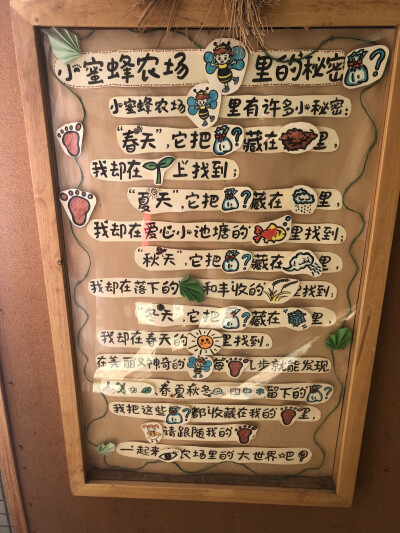 小蜜蜂农场里的秘密?
小蜜蜂农场里有许多小秘密:
“春天”,它把?藏在里,
我却在上找到;
“夏天”,它把?藏在里,
我却在爱心小池塘的里找到;
“秋天”,它把?藏在里,
我却在落下的和丰收的里找到;
“冬天”,它把?藏在里,
我却在春天的里找到。
在美丽又神奇的每几步就能发现
春夏秋冬留下的?
我把这些?都收藏在我的里,
请跟随我的
一起来农场里的大世界吧!